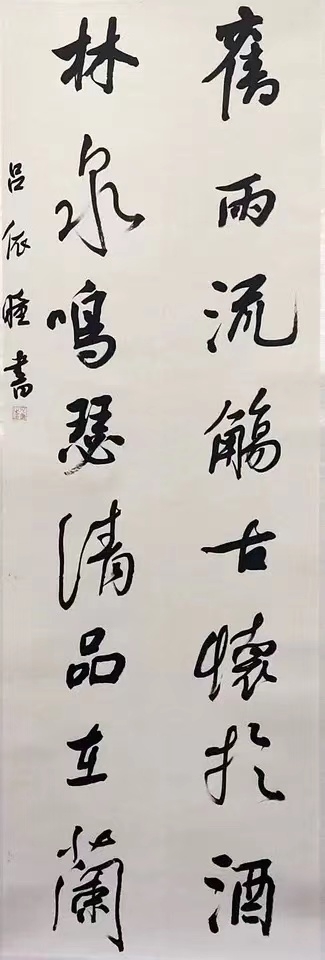 舊雨流觴古懷於酒
林泉鳴瑟清品在蘭
吕依
書